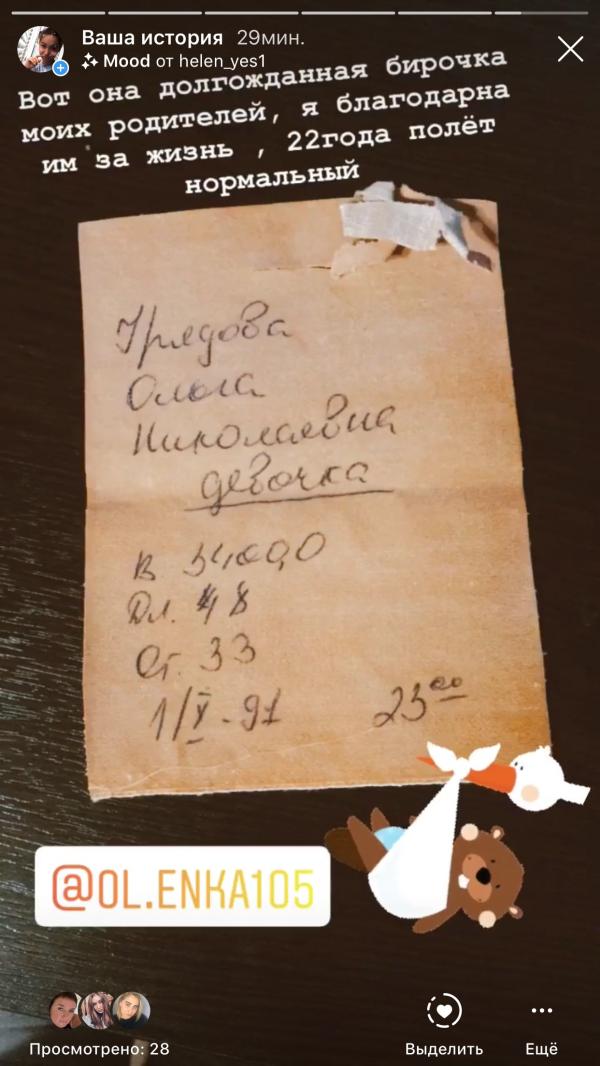 Ваша история 29мин.
Mood от helen_yes1
Вот она долгожданная бирочка
моих родителей, я благодарна
им за жизнь , 22года полёт
нормальный
Ольга
Николаевна
девочка
В 3400,0
Дл. 48
Ог. 33
1/V-91 23⁰⁰
@OL.ENKA105
Просмотрено: 28
Выделить
Ещё